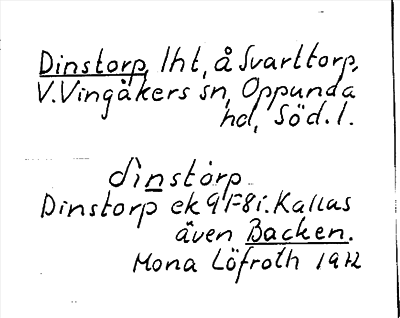 Dinstorp, lht, å Svarttorp,
V. Vingåkers sn, Oppunda
hd, Söd. l.
dìnstòrp
Dinstorp ek 9F8i. Kallas
även Backen.
Mona Löfroth 1972